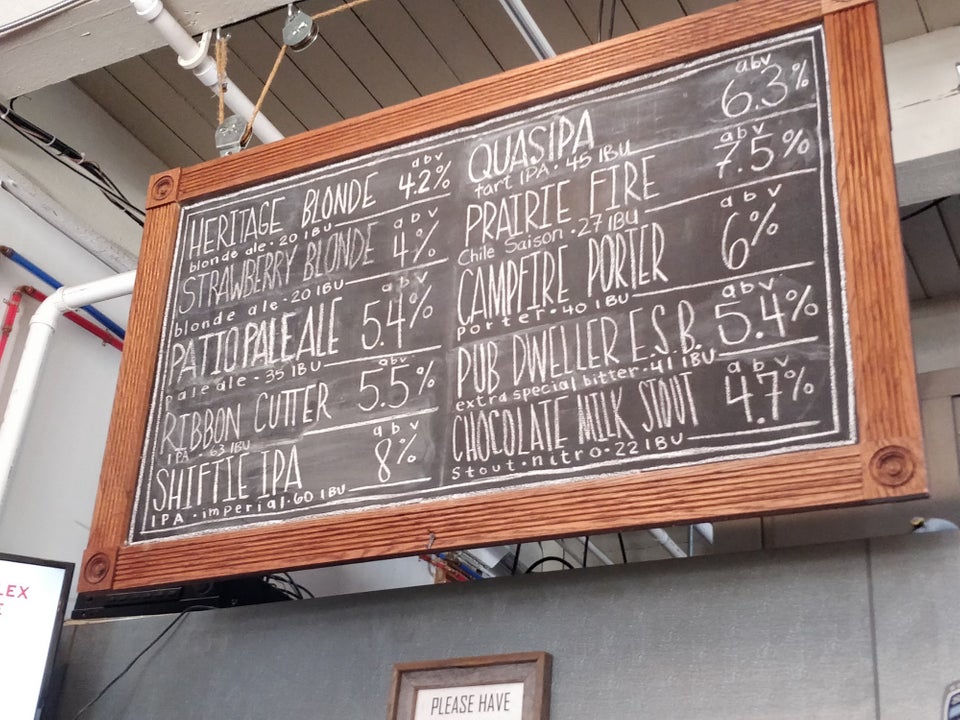 HERITAGE BLONDE abv 4.2%
blonde ale · 20 IBU
STRAWBERRY BLONDE abv 4%
blonde ale · 20 IBU
PATIO PALE ALE abv 5.4%
pale ale · 35 IBU
RIBBON CUTTER abv 5.5%
IPA · 63 IBU
SHIFTIE IPA abv 8%
IPA · imperial · 60 IBU
QUASIPA abv 6.3%
tart IPA · 45 IBU
PRAIRIE FIRE abv 7.5%
Chile Saison · 27 IBU
CAMPFIRE PORTER abv 6%
porter · 40 IBU
PUB DWELLER E.S.B. abv 5.4%
extra special bitter · 41 IBU
CHOCOLATE MILK STOUT abv 4.7%
Stout · nitro · 22 IBU
PLEASE HAVE